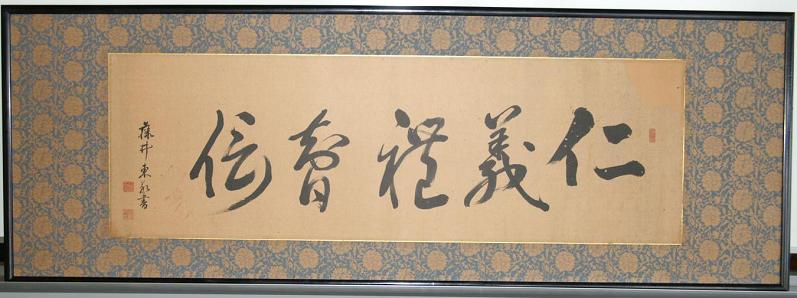 仁義禮智信
藤井東永書